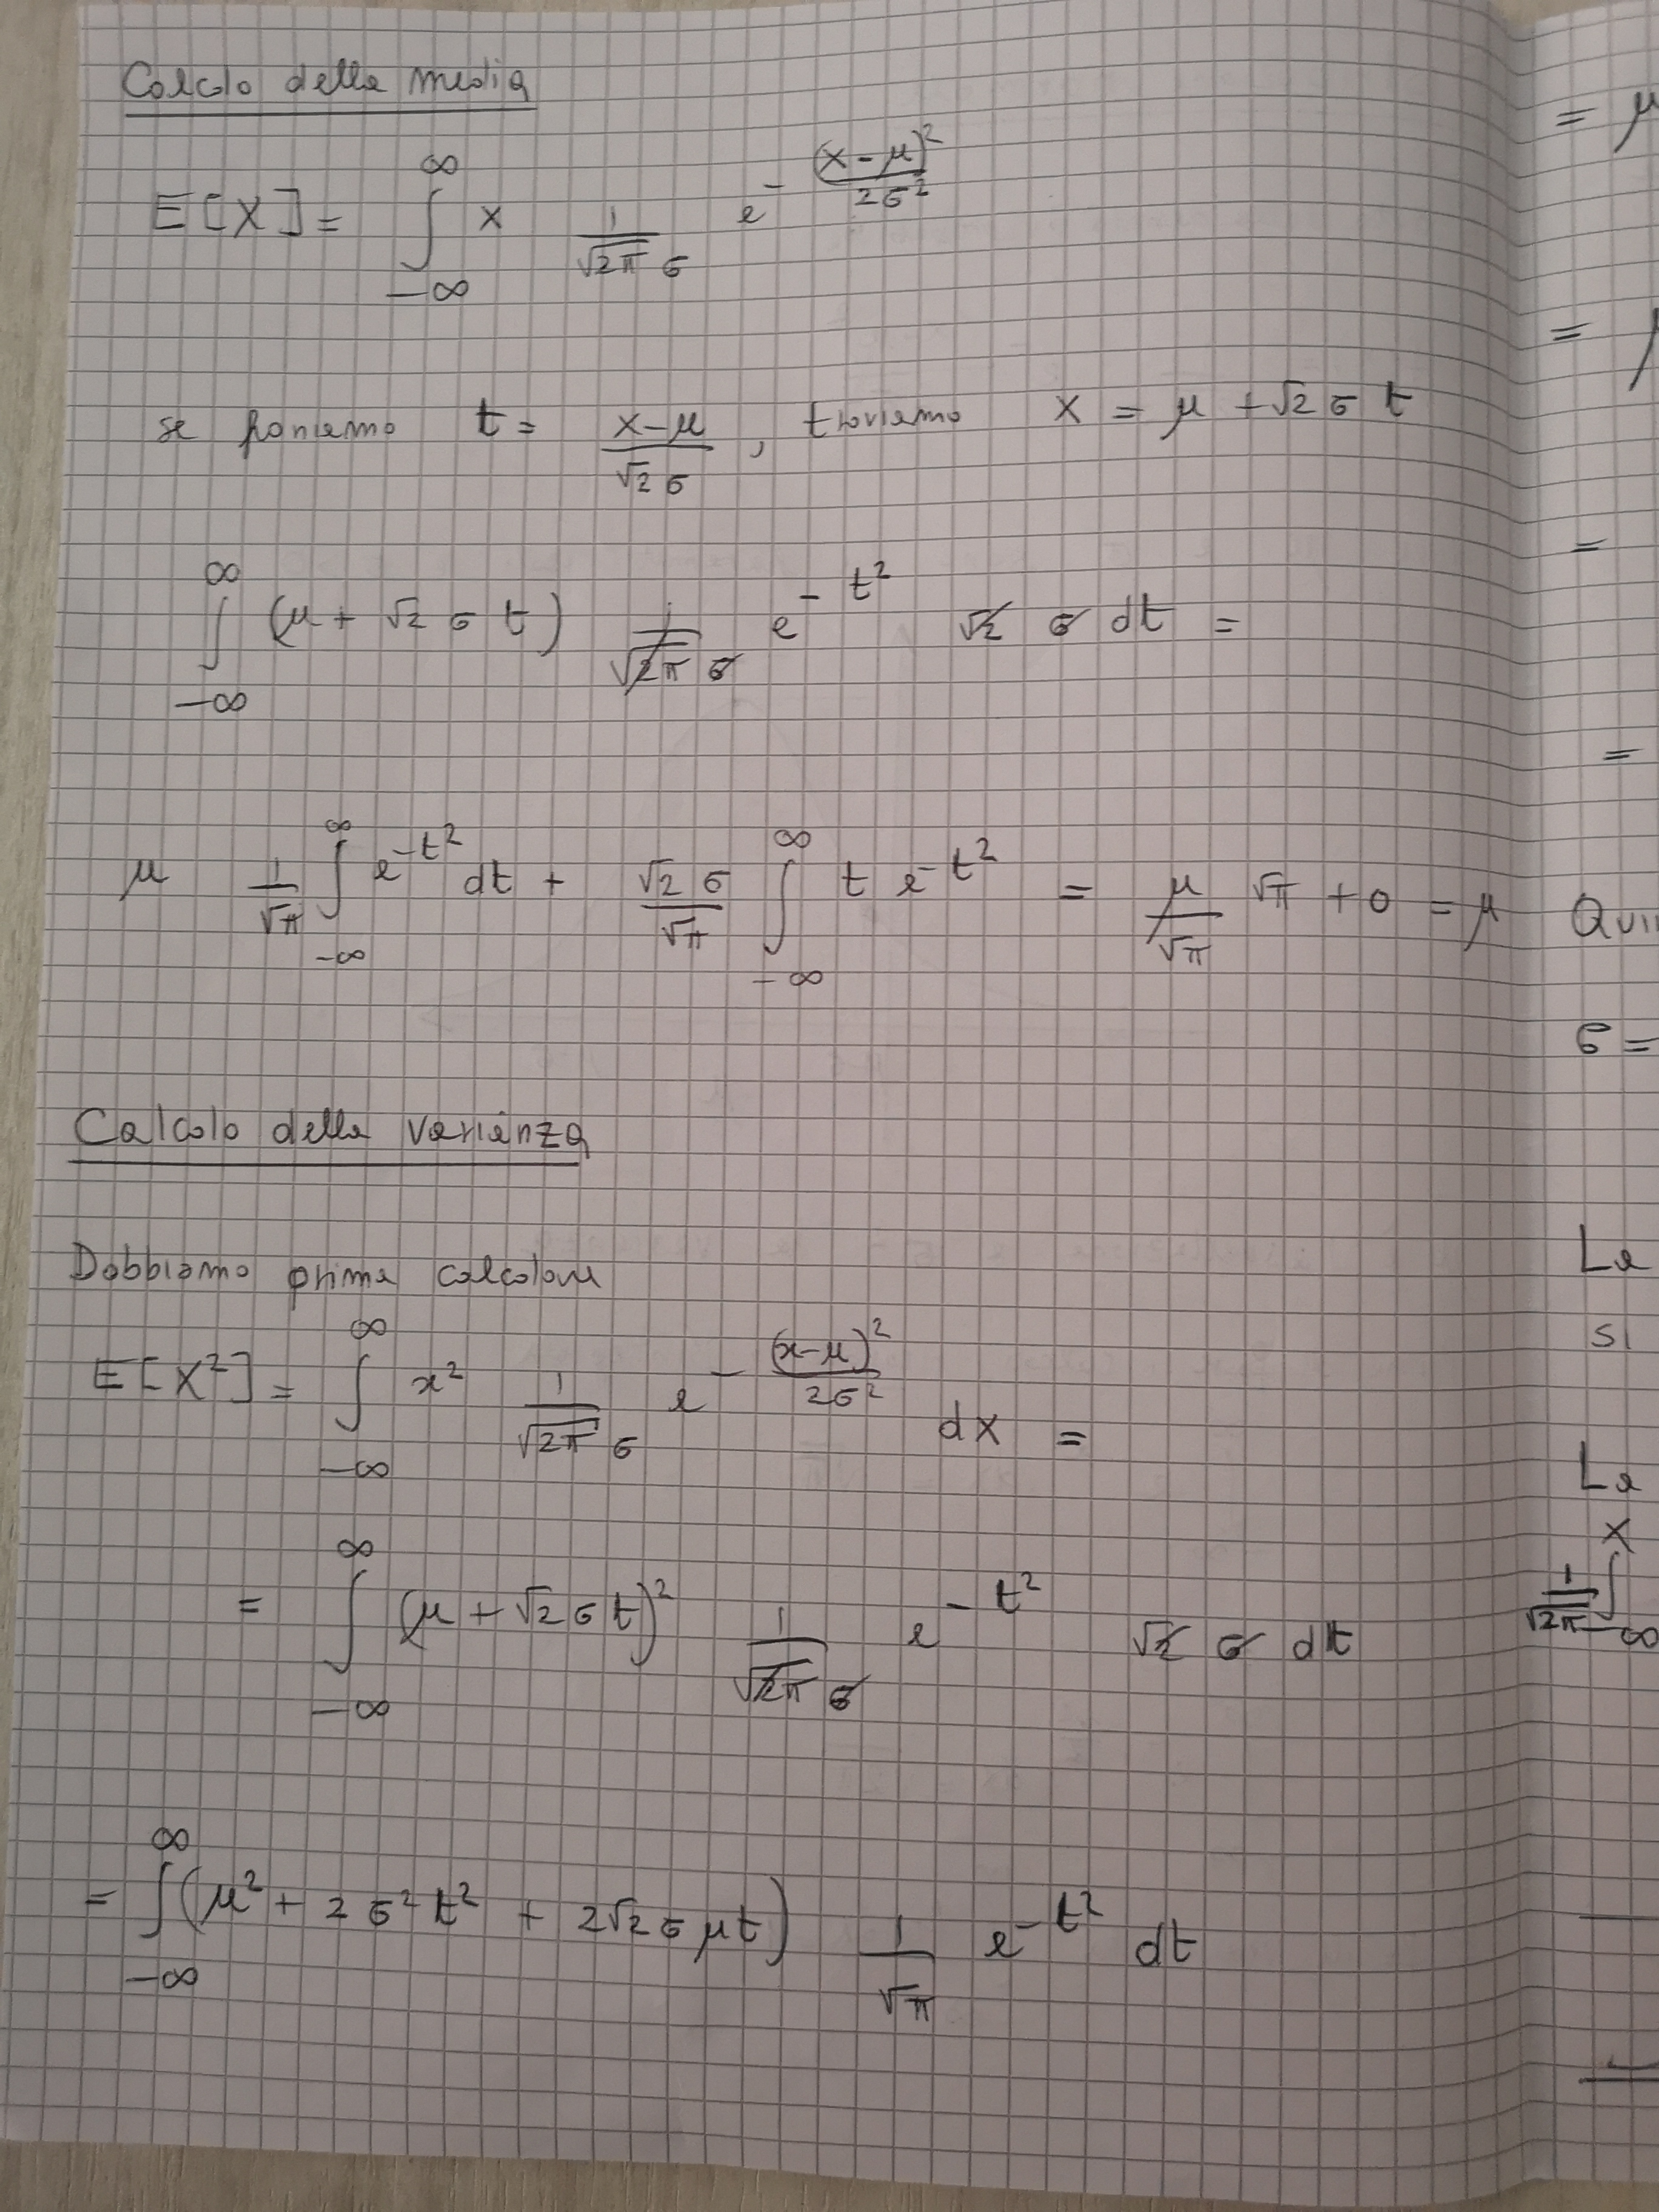 Calcolo della media
E[X] = ∫_{-∞}^{∞} x 1/(√2π σ) e^{-(x-μ)²/2σ²}
se poniamo t = (x-μ)/(√2 σ), troviamo x = μ + √2 σ t
∫_{-∞}^{∞} (μ + √2 σ t) 1/(√2π σ) e^{-t²} √2 σ dt =
μ 1/√π ∫_{-∞}^{∞} e^{-t²} dt + (√2 σ)/√π ∫_{-∞}^{∞} t e^{-t²} = μ/√π √π + 0 = μ
Calcolo della varianza
Dobbiamo prima calcolare
E[X²] = ∫_{-∞}^{∞} x² 1/(√2π σ) e^{-(x-μ)²/2σ²} dx =
= ∫_{-∞}^{∞} (μ + √2 σ t)² 1/(√2π σ) e^{-t²} √2 σ dt
= ∫_{-∞}^{∞} (μ² + 2σ²t² + 2√2 σ μt) 1/√π e^{-t²} dt
= μ
=
=
=
σ =
La
si
La
1/√2π ∫_{-∞}^{x}